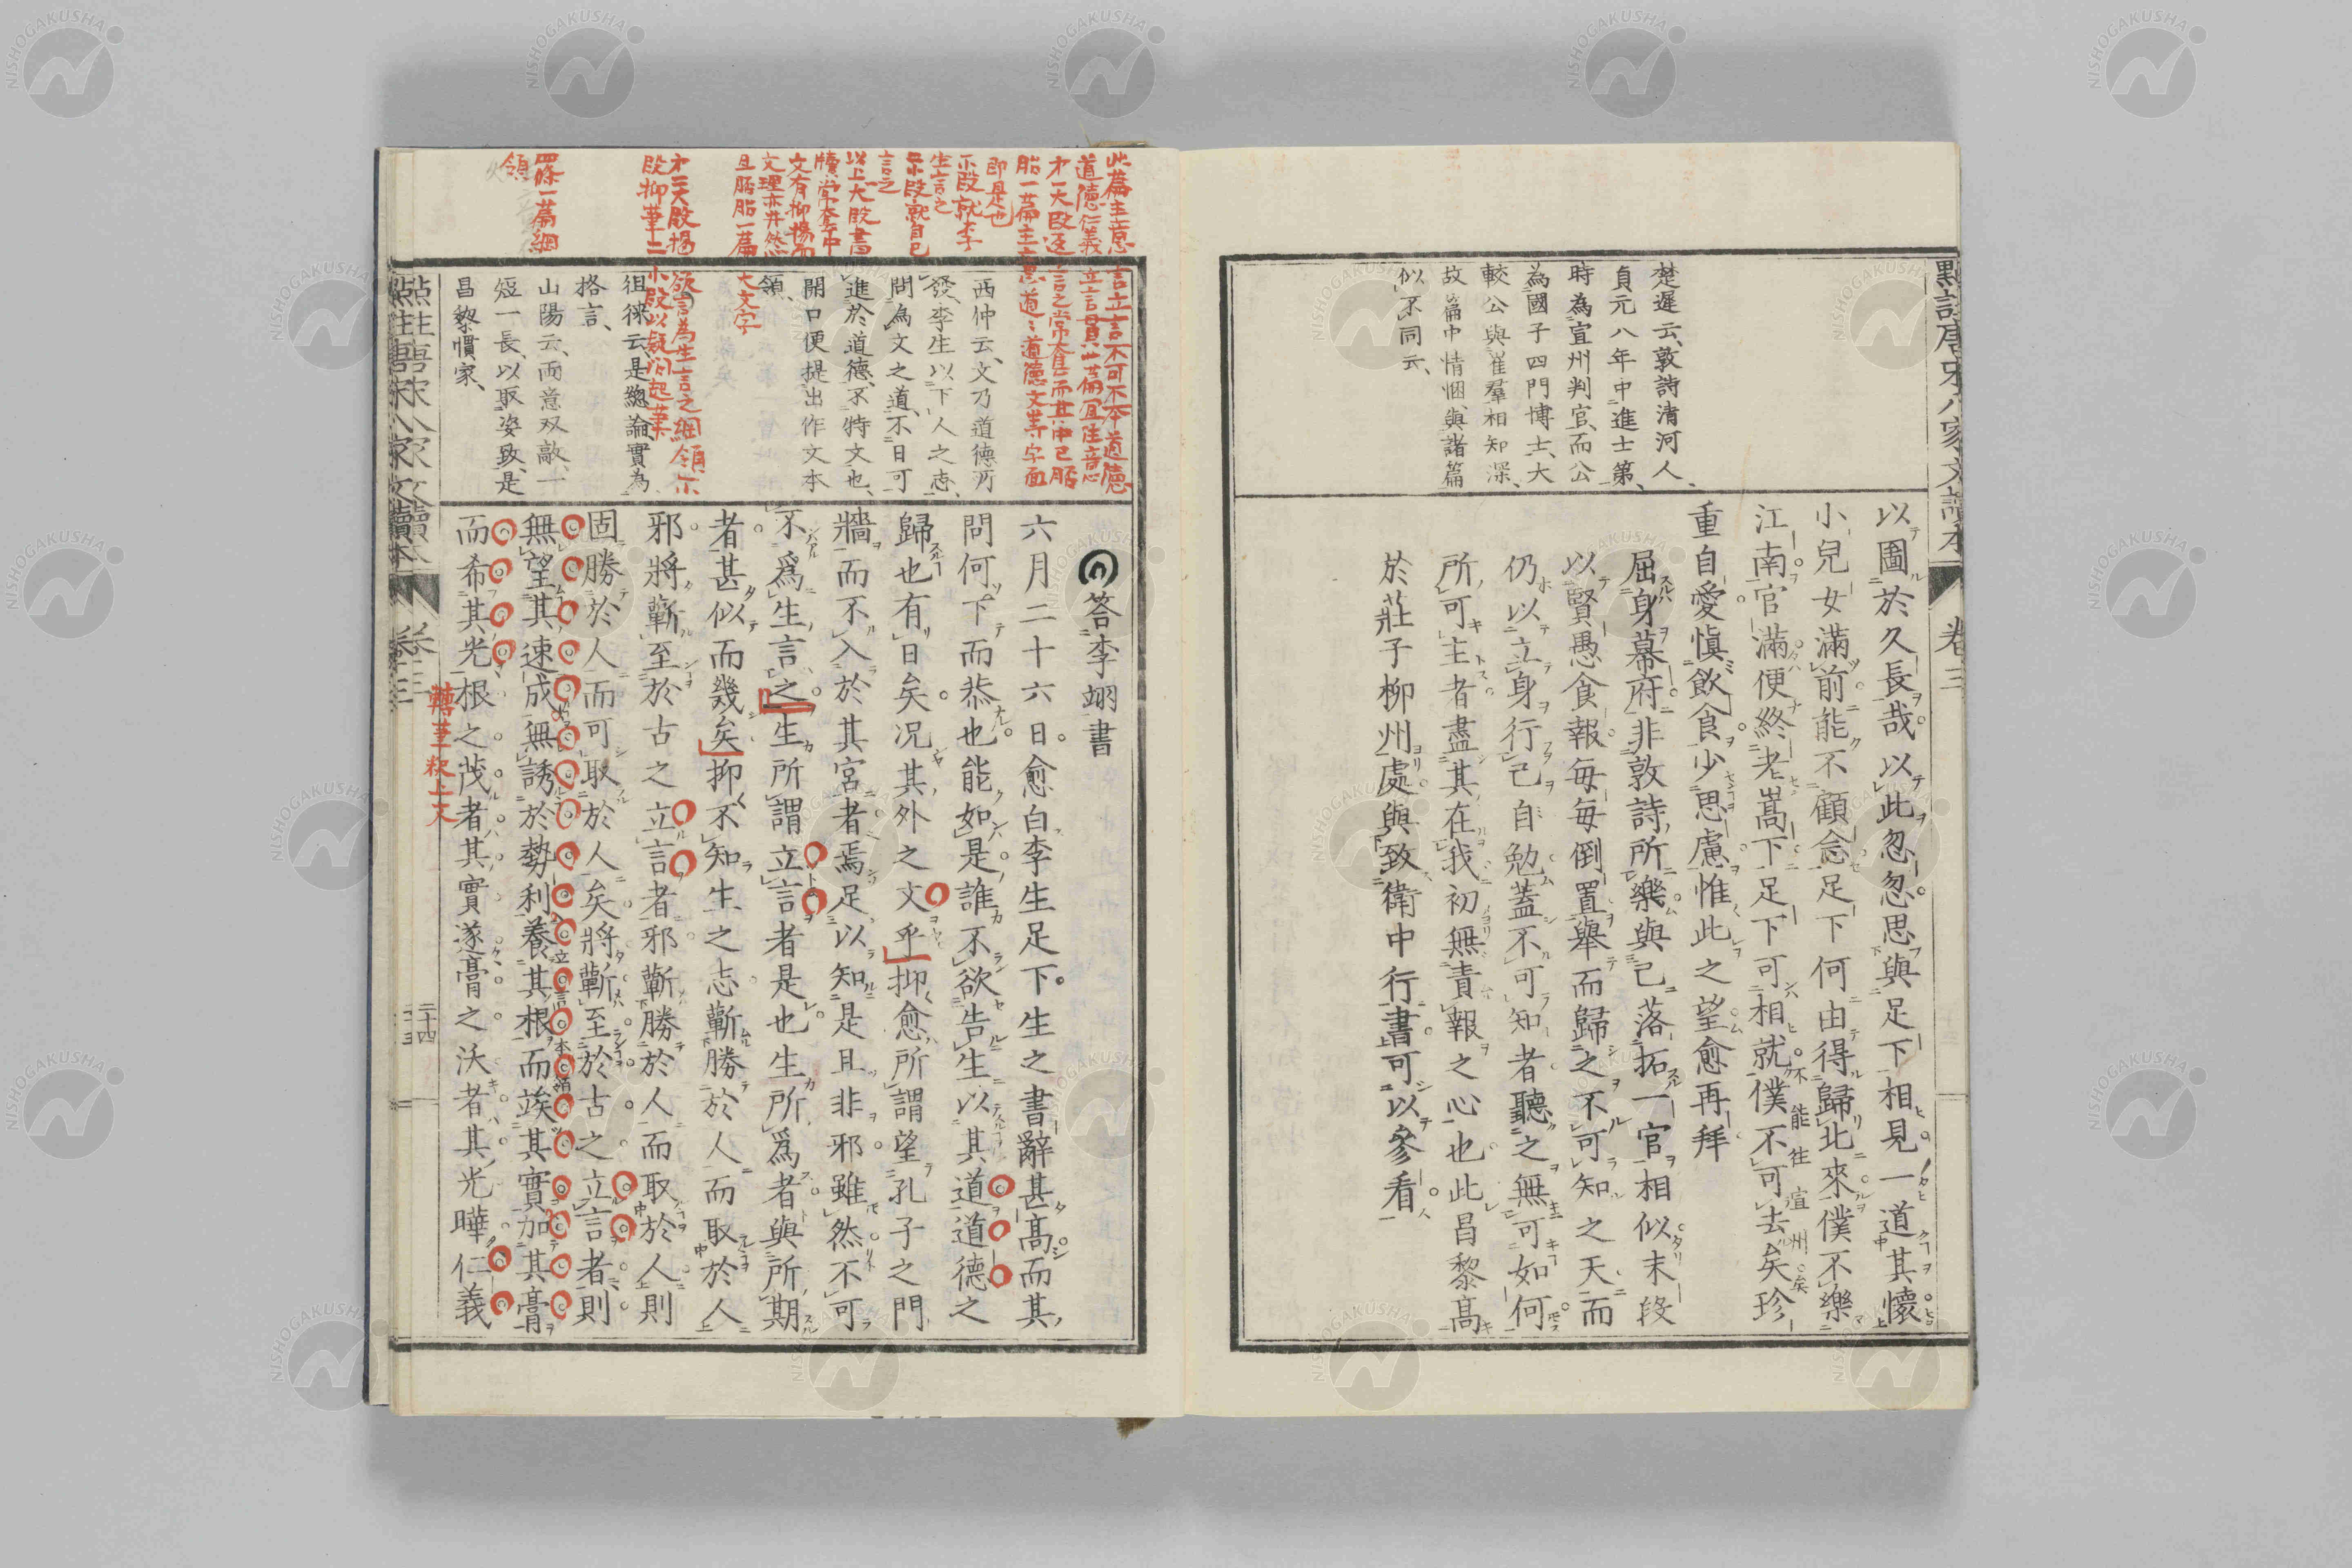 點註唐宋八家文讀本 卷三
楚遲云、敦詩清河人、
貞元八年中進士第、
時為宣州判官、而公
為國子四門博士、大
較公與崔羣相知深、
故篇中情悃、與諸篇
似不同云、
以圖於久長哉以此忽忽思與足下相見一道其懷
小兒女滿前能不顧念足下何由得歸北來僕不樂
江南官滿便終老嵩下足下可相就僕不可去矣珍
不能往宣州矣
重自愛愼飲食少思慮惟此之望愈再拜
屈身幕府非敦詩所樂與己落拓一官相似末段
以賢愚食報每每倒置舉而歸之不可知之天而
仍以立身行己自勉蓋不可知者聽之無可如何
所可主者盡其在我初無責報之心也此昌黎高
於莊子柳州處與致衛中行書可以參看
此篇主意
道德仁義
言立言不可不本道德
立言貫此篇宜注意
即是也
示段就李
生言之
示段就自己
言之
以上大段書
文有抑揚而
文理亦井然
且胚胎一篇
大文字
段抑筆二小段以疑问起筆
欲言為生言之綱領
四條一篇綱
領
西仲云、文乃道德所
發、李生以下人之志、
問為文之道、不日可
進於道德、不特文也、
開口便提出作文本
領、
徂徠云、是總論、實為
格言、
山陽云、両意双敵、一
短一長、以取姿致、是
昌黎慣家、
答李翊書
六月二十六日愈白李生足下生之書辭甚高而其
問何下而恭也能如是誰不欲告生以其道道德之
歸也有日矣况其外之文乎抑愈所謂望孔子之門
牆而不入於其宮者焉足以知是且非邪雖然不可
不爲生言之生所謂立言者是也生所爲者與所期
者甚似而幾矣抑不知生之志蘄勝於人而取於人
邪將蘄至於古之立言者邪蘄勝於人而取於人則
固勝於人而可取於人矣將蘄至於古之立言者則
無望其速成無誘於勢利養其根而竢其實加其膏
立言本領
而希其光根之茂者其實遂膏之沃者其光曄仁義
轉筆釈上文
點註唐宋八家文讀本 卷三 二十四